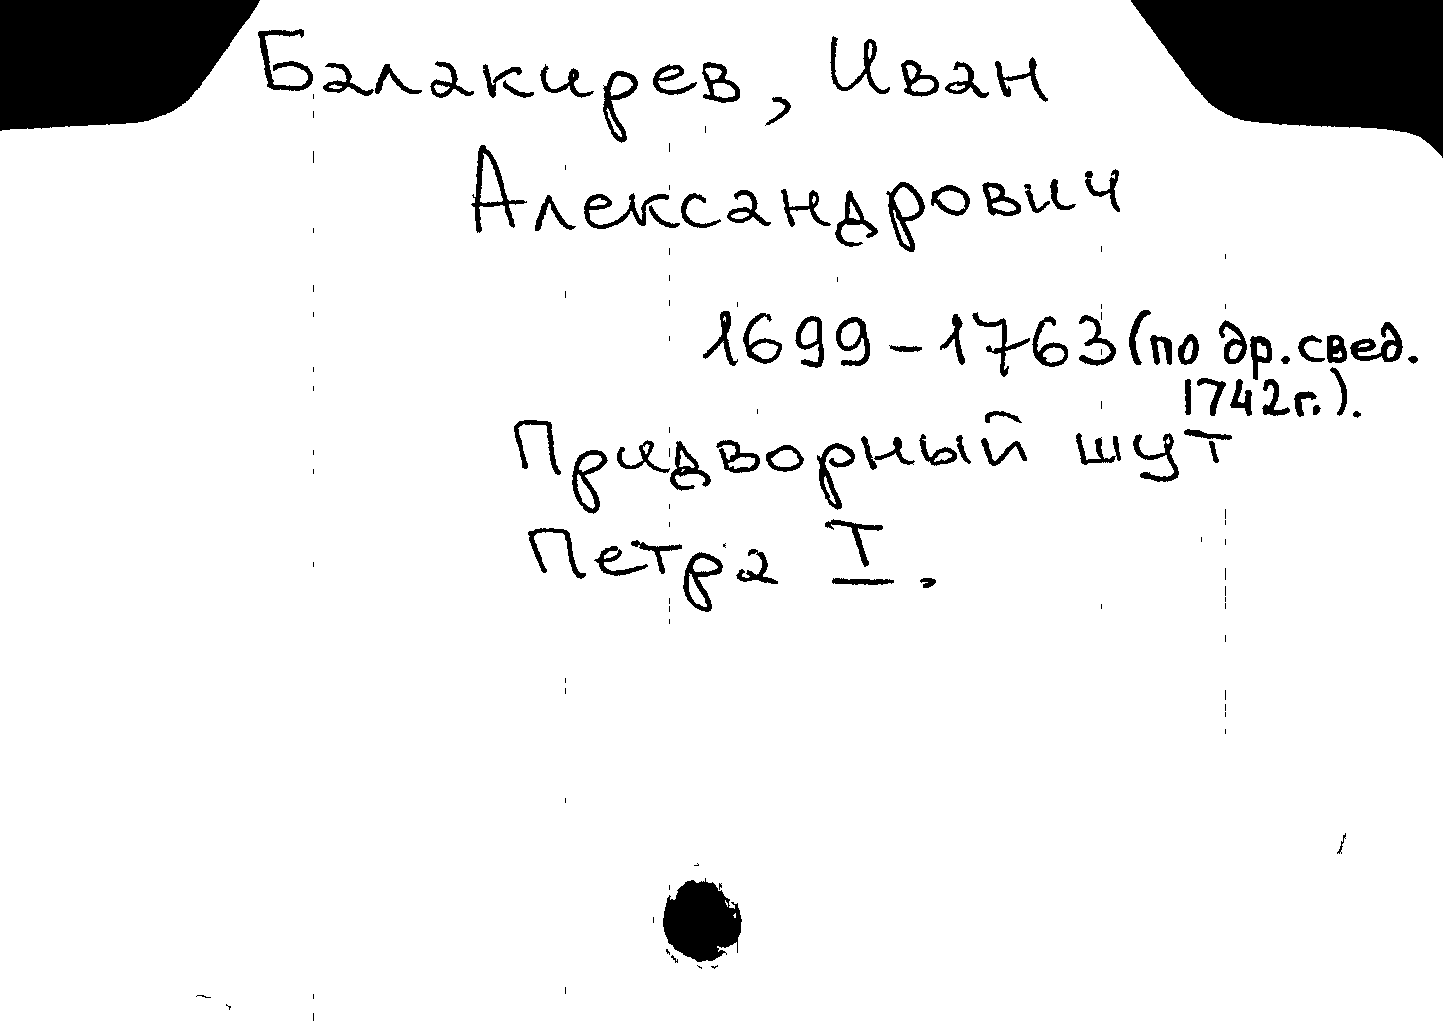 Балакирев, Иван
Александрович
1699-1763 (по др. свед.
1742г.).
Придворный шут
Петра I.